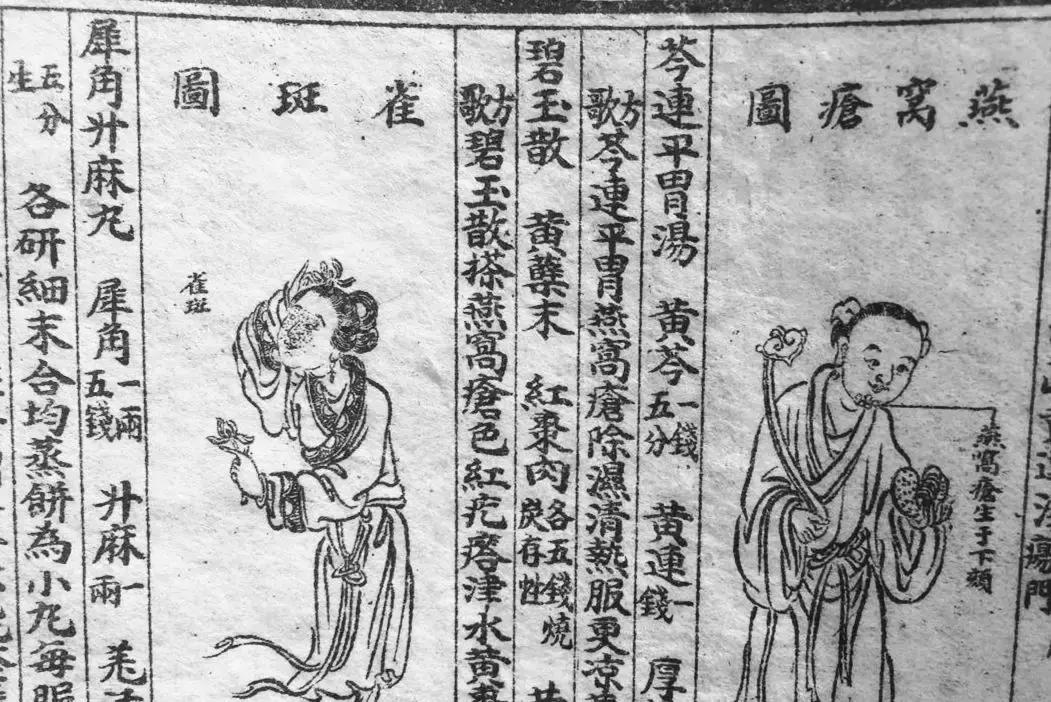 瘍門
燕窩瘡圖
燕窩瘡生于下頦
芩連平胃湯 黃芩一錢五分 黃連一錢 厚
方歌 芩連平胃燕窩瘡除濕清熱服更凉
碧玉散 黃蘗末 紅棗肉各五錢燒炭存性
方歌 碧玉散搽燕窩瘡色紅疙瘩津水黃
雀斑圖
雀斑
犀角升麻丸 犀角一兩五錢 升麻一兩 羌
五分生 各研細末合均蒸餅為小丸每服